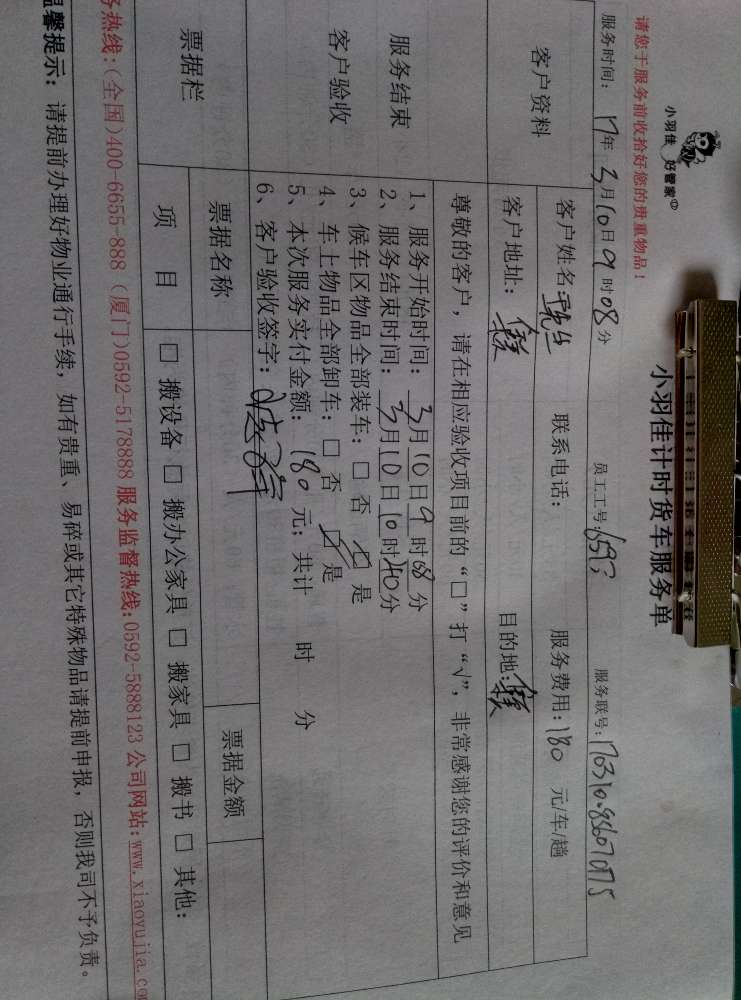 小羽佳 好管家
小羽佳计时货车服务单
请您于服务前收拾好您的贵重物品！
服务时间：17年3月10日9时08分 员工工号: 服务联号:
客户资料
客户姓名: 联系电话: 服务费用:180 元/车/趟
客户地址: 目的地:
尊敬的客户，请在相应验收项目前的“□”打“√”，非常感谢您的评价和意见
服务结束
客户验收
1、服务开始时间：3月10日9时08分
2、服务结束时间：3月10日10时40分
3、候车区物品全部装车：□ 否 □ 是
4、车上物品全部卸车：□ 否 □ 是
5、本次服务实付金额：180元；共计 时 分
6、客户验收签字：
票据栏
票据名称 票据金额
项 目 □ 搬设备 □ 搬办公家具 □ 搬家具 □ 搬书 □ 其他：
务热线:(全国)400-6655-888 (厦门)0592-5178888 服务监督热线:0592-5888123 公司网站:www.xiaoyujia.co
温馨提示：请提前办理好物业通行手续，如有贵重、易碎或其它特殊物品请提前申报，否则我司不予负责。